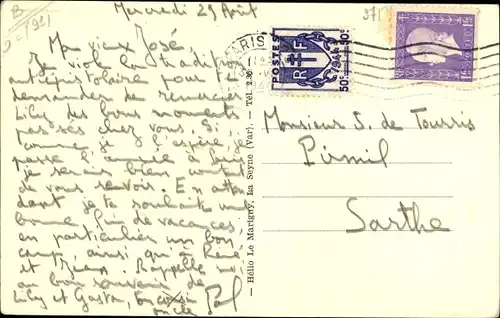 B
Mercredi 29 Août
Mon vieux José,
Je viole la tradition
antiépistolaire pour te
demander de remercier
Lily des bons moments
passés chez vous. Si,
comme je l'espère, je
passe l'année à Paris
je serais bien content
de vous revoir. En atten
dant je te souhaite une
bonne fin de vacances,
en particulier un bon
camp, ainsi qu'à René
et Rappelle moi
au bon souvenir de
Lily et Gaston, Ton
oncle Paul
Hélio Le Marigny, La Seyne (Var). — Tél. 2.20
PARIS
POSTES
RF
50c
Monsieur S. de Tourris
Pirmil
Sarthe